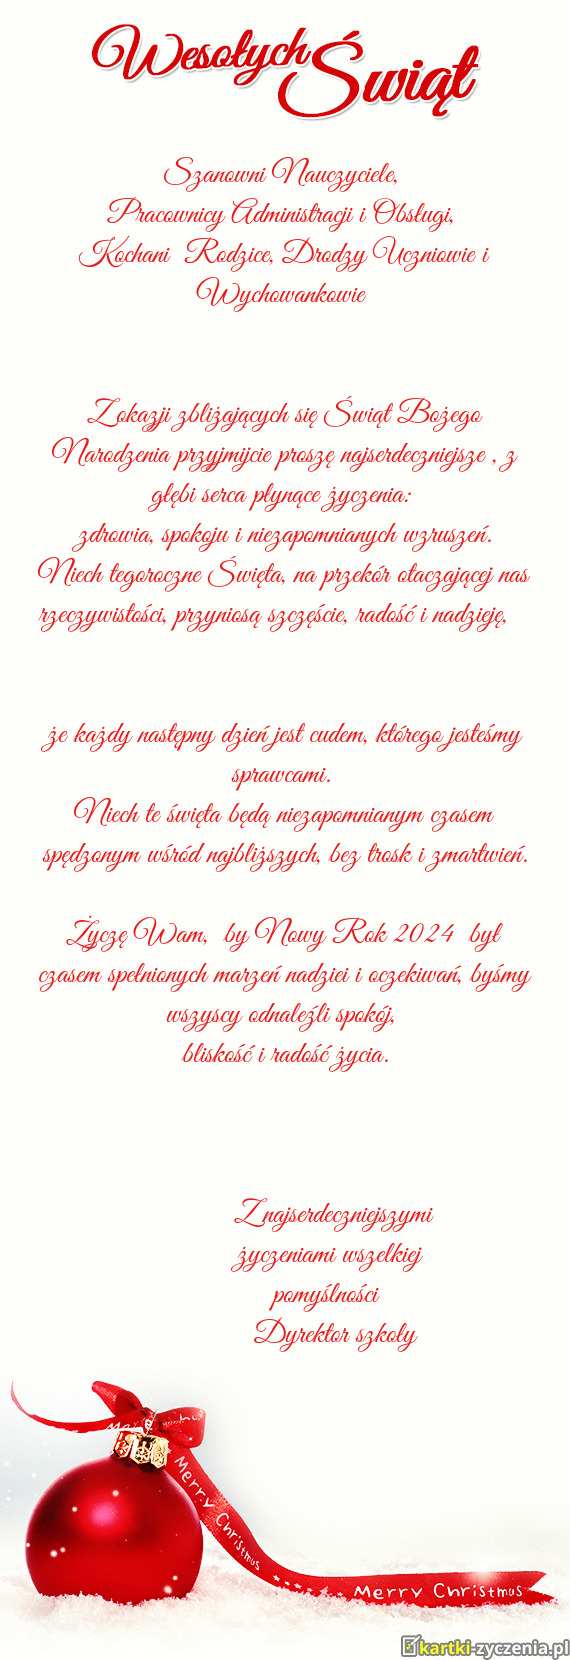 Wesołych Świąt
Szanowni Nauczyciele,
Pracownicy Administracji i Obsługi,
Kochani Rodzice, Drodzy Uczniowie i
Wychowankowie
Z okazji zbliżających się Świąt Bożego
Narodzenia przyjmijcie proszę najserdeczniejsze , z
głębi serca płynące życzenia:
zdrowia, spokoju i niezapomnianych wzruszeń.
Niech tegoroczne Święta, na przekór otaczającej nas
rzeczywistości, przyniosą szczęście, radość i nadzieję,
że każdy następny dzień jest cudem, którego jesteśmy
sprawcami.
Niech te święta będą niezapomnianym czasem
spędzonym wśród najbliższych, bez trosk i zmartwień.
Życzę Wam, by Nowy Rok 2024 był
czasem spełnionych marzeń nadziei i oczekiwań, byśmy
wszyscy odnaleźli spokój,
bliskość i radość życia.
Z najserdeczniejszymi
życzeniami wszelkiej
pomyślności
Dyrektor szkoły
Merry Christmas
Merry Christmas
kartki-zyczenia.pl